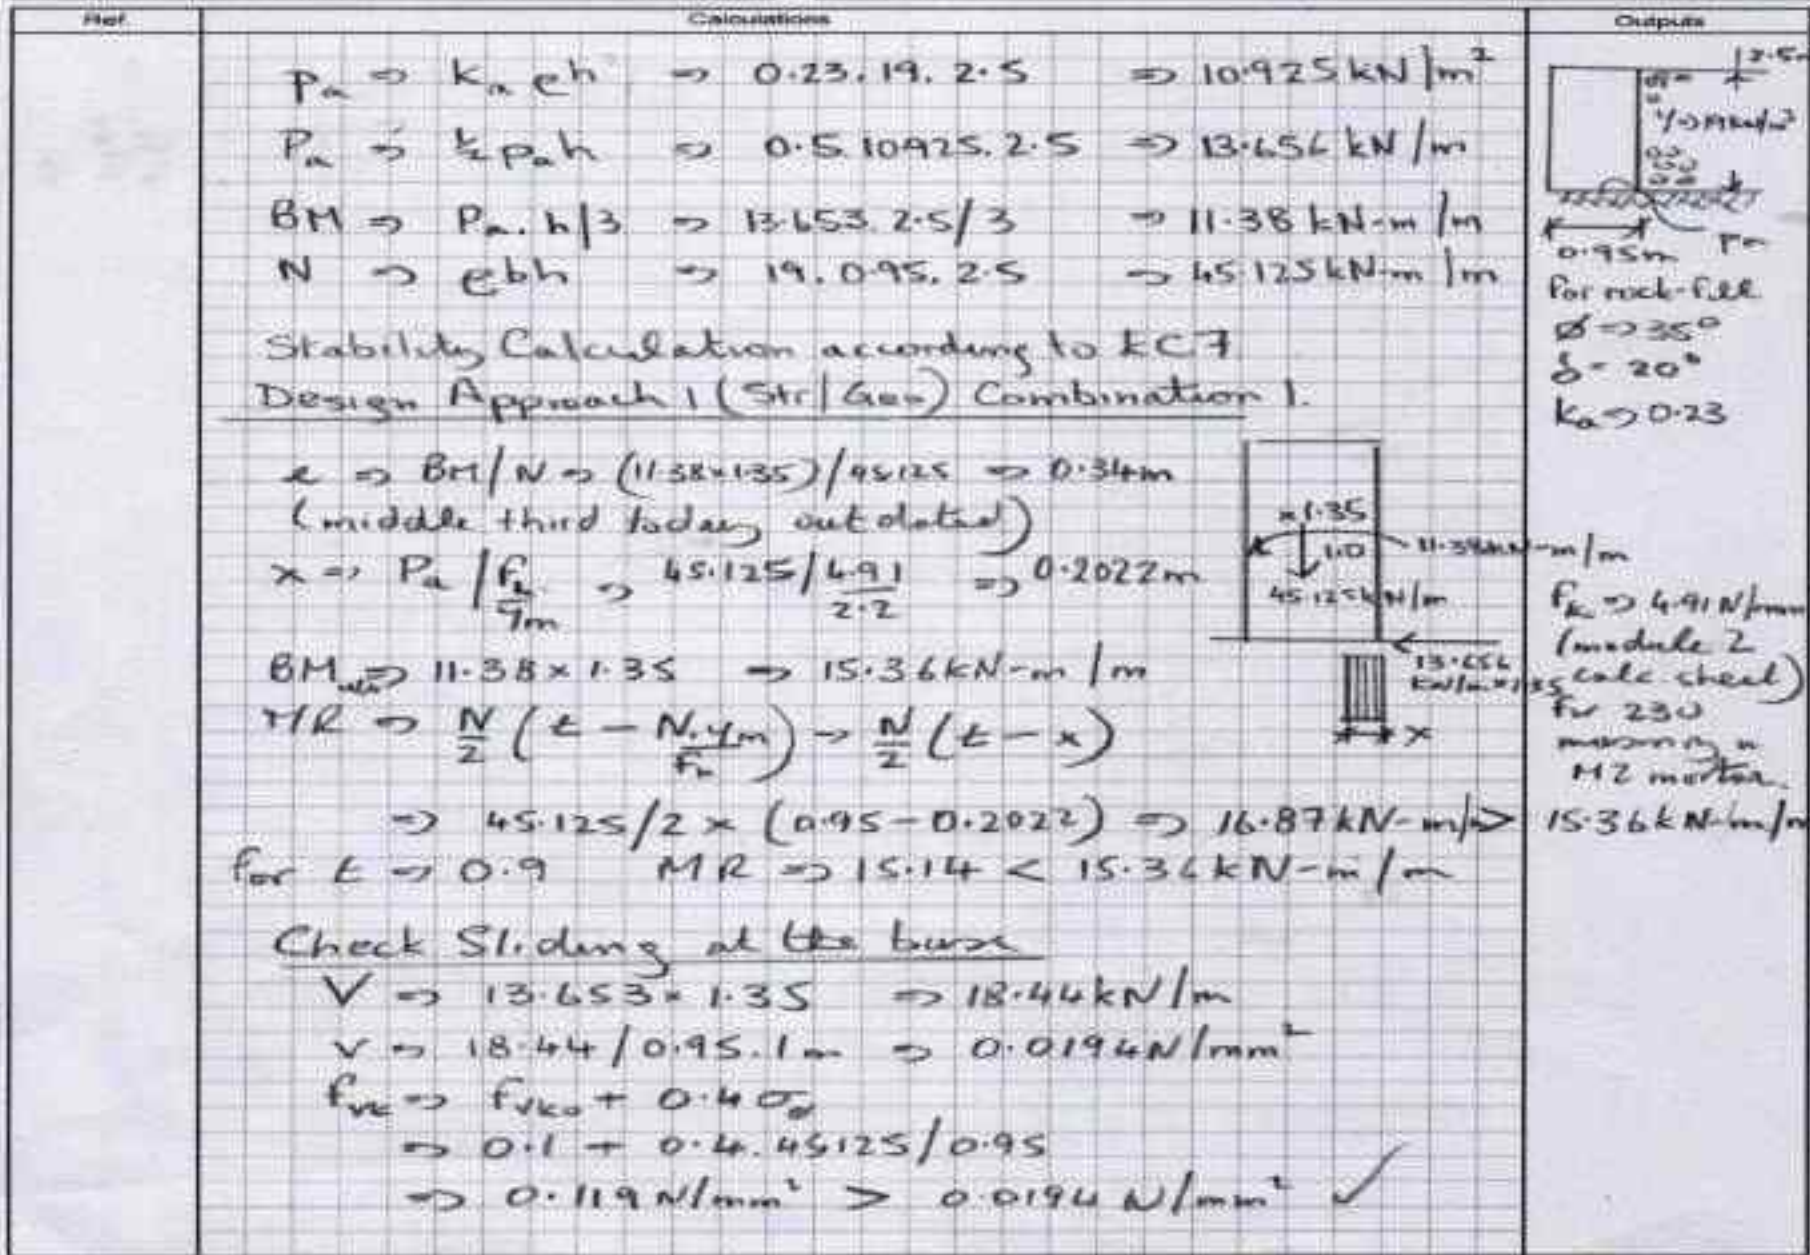 Ref.
Calculations
Outputs
Pa ⇒ ka ρh ⇒ 0.23. 19. 2.5 ⇒ 10.925 kN/m²
Pa ⇒ ½ pah ⇒ 0.5. 10925. 2.5 ⇒ 13.656 kN/m
BM ⇒ Pa. h/3 ⇒ 13.653. 2.5/3 ⇒ 11.38 kN-m/m
N ⇒ ρbh ⇒ 19. 0.95. 2.5 ⇒ 45.125 kN-m/m
Stability Calculation according to EC7
Design Approach 1 (Str/Geo) Combination 1.
e ⇒ BM/N ⇒ (11.38×1.35)/45.125 ⇒ 0.34m
(middle third today outdated)
x ⇒ Pa / fk/γm ⇒ 45.125 / 4.91/2.2 ⇒ 0.2022m
BMult ⇒ 11.38 × 1.35 ⇒ 15.36 kN-m/m
MR ⇒ N/2 (t - N.γm/fk) → N/2 (t - x)
⇒ 45.125/2 × (0.95-0.2022) ⇒ 16.87 kN-m/m > 15.36 kN-m/m
for t ⇒ 0.9 MR ⇒ 15.14 < 15.36 kN-m/m
Check Sliding at the base
V ⇒ 13.653 × 1.35 ⇒ 18.44 kN/m
v ⇒ 18.44/0.95.1m ⇒ 0.0194 N/mm²
fvk ⇒ fvko + 0.4σd
⇒ 0.1 + 0.4. 45125/0.95
⇒ 0.119 N/mm² > 0.0194 N/mm² ✓
×1.35
1.0
11.38kN-m/m
45.125kN/m
13.656
kN/m×1.35
x
2.5m
γ⇒19kN/m³
0.95m
Pa
for rock-fill
φ ⇒ 35°
δ - 20°
ka ⇒ 0.23
fk ⇒ 4.91 N/mm
(module 2
calc sheet)
for 230
masonry in
M2 mortar